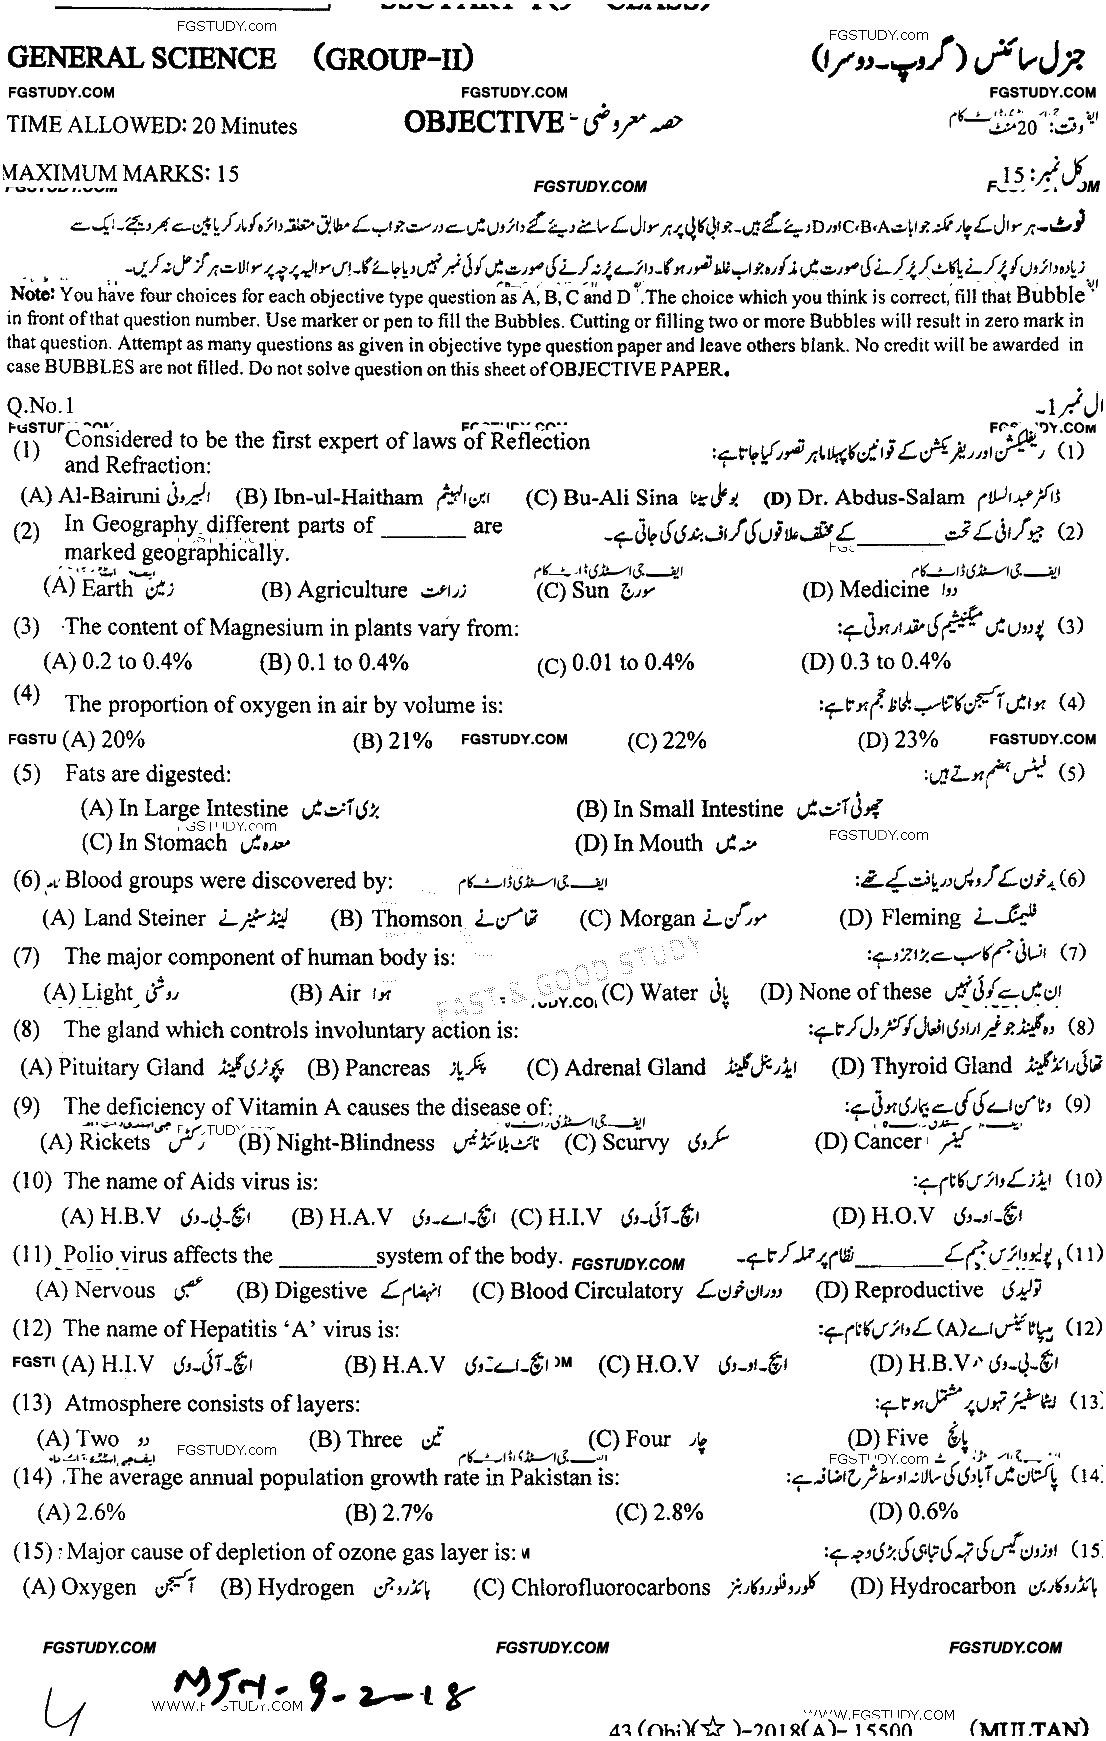 FGSTUDY.com FGSTUDY.com
GENERAL SCIENCE (GROUP-II) جنرل سائنس (گروپ۔دوسرا)
FGSTUDY.COM FGSTUDY.COM FGSTUDY.COM
TIME ALLOWED: 20 Minutes OBJECTIVE - حصہ معروضی وقت: 20 منٹ
MAXIMUM MARKS: 15 کل نمبر: 15
FGSTUDY.COM
نوٹ۔ ہر سوال کے چار ممکنہ جوابات A،B،C اور D دیئے گئے ہیں۔ جوابی کاپی پر ہر سوال کے سامنے دیئے گئے دائروں میں سے درست جواب کے مطابق متعلقہ دائرہ کو مارکر یا پین سے بھر دیجئے۔ ایک سے
زیادہ دائروں کو پُر کرنے یا کاٹ کر پُر کرنے کی صورت میں مذکورہ جواب غلط تصور ہوگا۔ دائرے پُر نہ کرنے کی صورت میں کوئی نمبر نہیں دیا جائے گا۔ اس سوالیہ پرچہ پر سوالات ہرگز حل نہ کریں۔
Note: You have four choices for each objective type question as A, B, C and D . The choice which you think is correct, fill that Bubble
in front of that question number. Use marker or pen to fill the Bubbles. Cutting or filling two or more Bubbles will result in zero mark in
that question. Attempt as many questions as given in objective type question paper and leave others blank. No credit will be awarded in
case BUBBLES are not filled. Do not solve question on this sheet of OBJECTIVE PAPER.
Q.No.1 ال نمبر 1۔
(1) Considered to be the first expert of laws of Reflection
and Refraction: (1) ریفلیکشن اور ریفریکشن کے قوانین کا پہلا ماہر تصور کیا جاتا ہے:
(A) Al-Bairuni البیرونی (B) Ibn-ul-Haitham ابن الہیثم (C) Bu-Ali Sina بو علی سینا (D) Dr. Abdus-Salam ڈاکٹر عبدالسلام
(2) In Geography different parts of _______ are
marked geographically. (2) جیوگرافی کے تحت _______ کے مختلف علاقوں کی گراف بندی کی جاتی ہے۔
ایف جی اسٹڈی ڈاٹ کام ایف جی اسٹڈی ڈاٹ کام
(A) Earth زمین (B) Agriculture زراعت (C) Sun سورج (D) Medicine دوا
(3) The content of Magnesium in plants vary from: (3) پودوں میں میگنیشیم کی مقدار ہوتی ہے:
(A) 0.2 to 0.4% (B) 0.1 to 0.4% (C) 0.01 to 0.4% (D) 0.3 to 0.4%
(4) The proportion of oxygen in air by volume is: (4) ہوا میں آکسیجن کا تناسب بلحاظ حجم ہوتا ہے:
FGSTU (A) 20% (B) 21% FGSTUDY.COM (C) 22% (D) 23% FGSTUDY.COM
(5) Fats are digested: (5) فیٹس ہضم ہوتے ہیں:
(A) In Large Intestine بڑی آنت میں (B) In Small Intestine چھوٹی آنت میں
FGSTUDY.com FGSTUDY.com
(C) In Stomach معدہ میں (D) In Mouth منہ میں
(6) Blood groups were discovered by: ایف جی اسٹڈی ڈاٹ کام (6) خون کے گروپس دریافت کیے تھے:
(A) Land Steiner لینڈ سٹینر نے (B) Thomson تھامسن نے (C) Morgan مورگن نے (D) Fleming فلیمنگ نے
(7) The major component of human body is: (7) انسانی جسم کا سب سے بڑا جزو ہے:
FAST & GOOD STUDY
(A) Light روشنی (B) Air ہوا (C) Water پانی (D) None of these ان میں سے کوئی نہیں
(8) The gland which controls involuntary action is: (8) وہ گلینڈ جو غیر ارادی افعال کو کنٹرول کرتا ہے:
(A) Pituitary Gland پچوٹری گلینڈ (B) Pancreas پنکریاز (C) Adrenal Gland ایڈرینل گلینڈ (D) Thyroid Gland تھائی رائڈ گلینڈ
(9) The deficiency of Vitamin A causes the disease of: (9) وٹامن اے کی کمی سے بیماری ہوتی ہے:
(A) Rickets رکٹس (B) Night-Blindness نائٹ بلائنڈنیس (C) Scurvy سکروی (D) Cancer کینسر
(10) The name of Aids virus is: (10) ایڈز کے وائرس کا نام ہے:
(A) H.B.V ایچ۔بی۔وی (B) H.A.V ایچ۔اے۔وی (C) H.I.V ایچ۔آئی۔وی (D) H.O.V ایچ۔او۔وی
(11) Polio virus affects the ________ system of the body. FGSTUDY.COM (11) پولیو وائرس جسم کے ________ نظام پر حملہ کرتا ہے۔
(A) Nervous عصبی (B) Digestive انہضام کے (C) Blood Circulatory دوران خون کے (D) Reproductive تولیدی
(12) The name of Hepatitis ‘A’ virus is: (12) ہیپاٹائٹس اے (A) کے وائرس کا نام ہے:
FGSTI (A) H.I.V ایچ۔آئی۔وی (B) H.A.V ایچ۔اے۔وی OM (C) H.O.V ایچ۔او۔وی (D) H.B.V ایچ۔بی۔وی
(13) Atmosphere consists of layers: (13) ایٹماسفیئر تہوں پر مشتمل ہوتا ہے:
(A) Two دو (B) Three تین (C) Four چار (D) Five پانچ
FGSTUDY.com ایف جی اسٹڈی ڈاٹ کام FGSTUDY.com
(14) The average annual population growth rate in Pakistan is: (14) پاکستان میں آبادی کی سالانہ اوسط شرح اضافہ ہے:
(A) 2.6% (B) 2.7% (C) 2.8% (D) 0.6%
(15) Major cause of depletion of ozone gas layer is: (15) اوزون گیس کی تہہ کی تباہی کی بڑی وجہ ہے:
(A) Oxygen آکسیجن (B) Hydrogen ہائڈروجن (C) Chlorofluorocarbons کلوروفلوروکاربنز (D) Hydrocarbon ہائڈروکاربن
FGSTUDY.COM FGSTUDY.COM FGSTUDY.COM
MJH-9-2-18
WWW.FGSTUDY.COM WWW.FGSTUDY.COM
43 (Obj)(☆)-2018(A)-15500 (MULTAN)